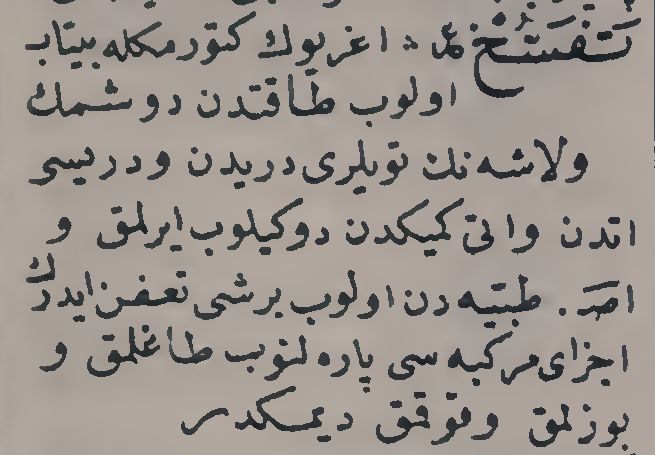 تَفَسُّخ عَ ؞ اغر يوك كتورمكله بيتاب
اولوب طاقتدن دوشمك
ولاشه نك تويلرى دريدن ودريسى
اتدن واتى كميكدن دوكيلوب ايرلمق و
اصـ . طبيه دن اولوب برشى تعفن ايدرك
اجزاى مركبه سى پاره لنوب طاغلمق و
بوزلمق وقوقمق ديمكدر